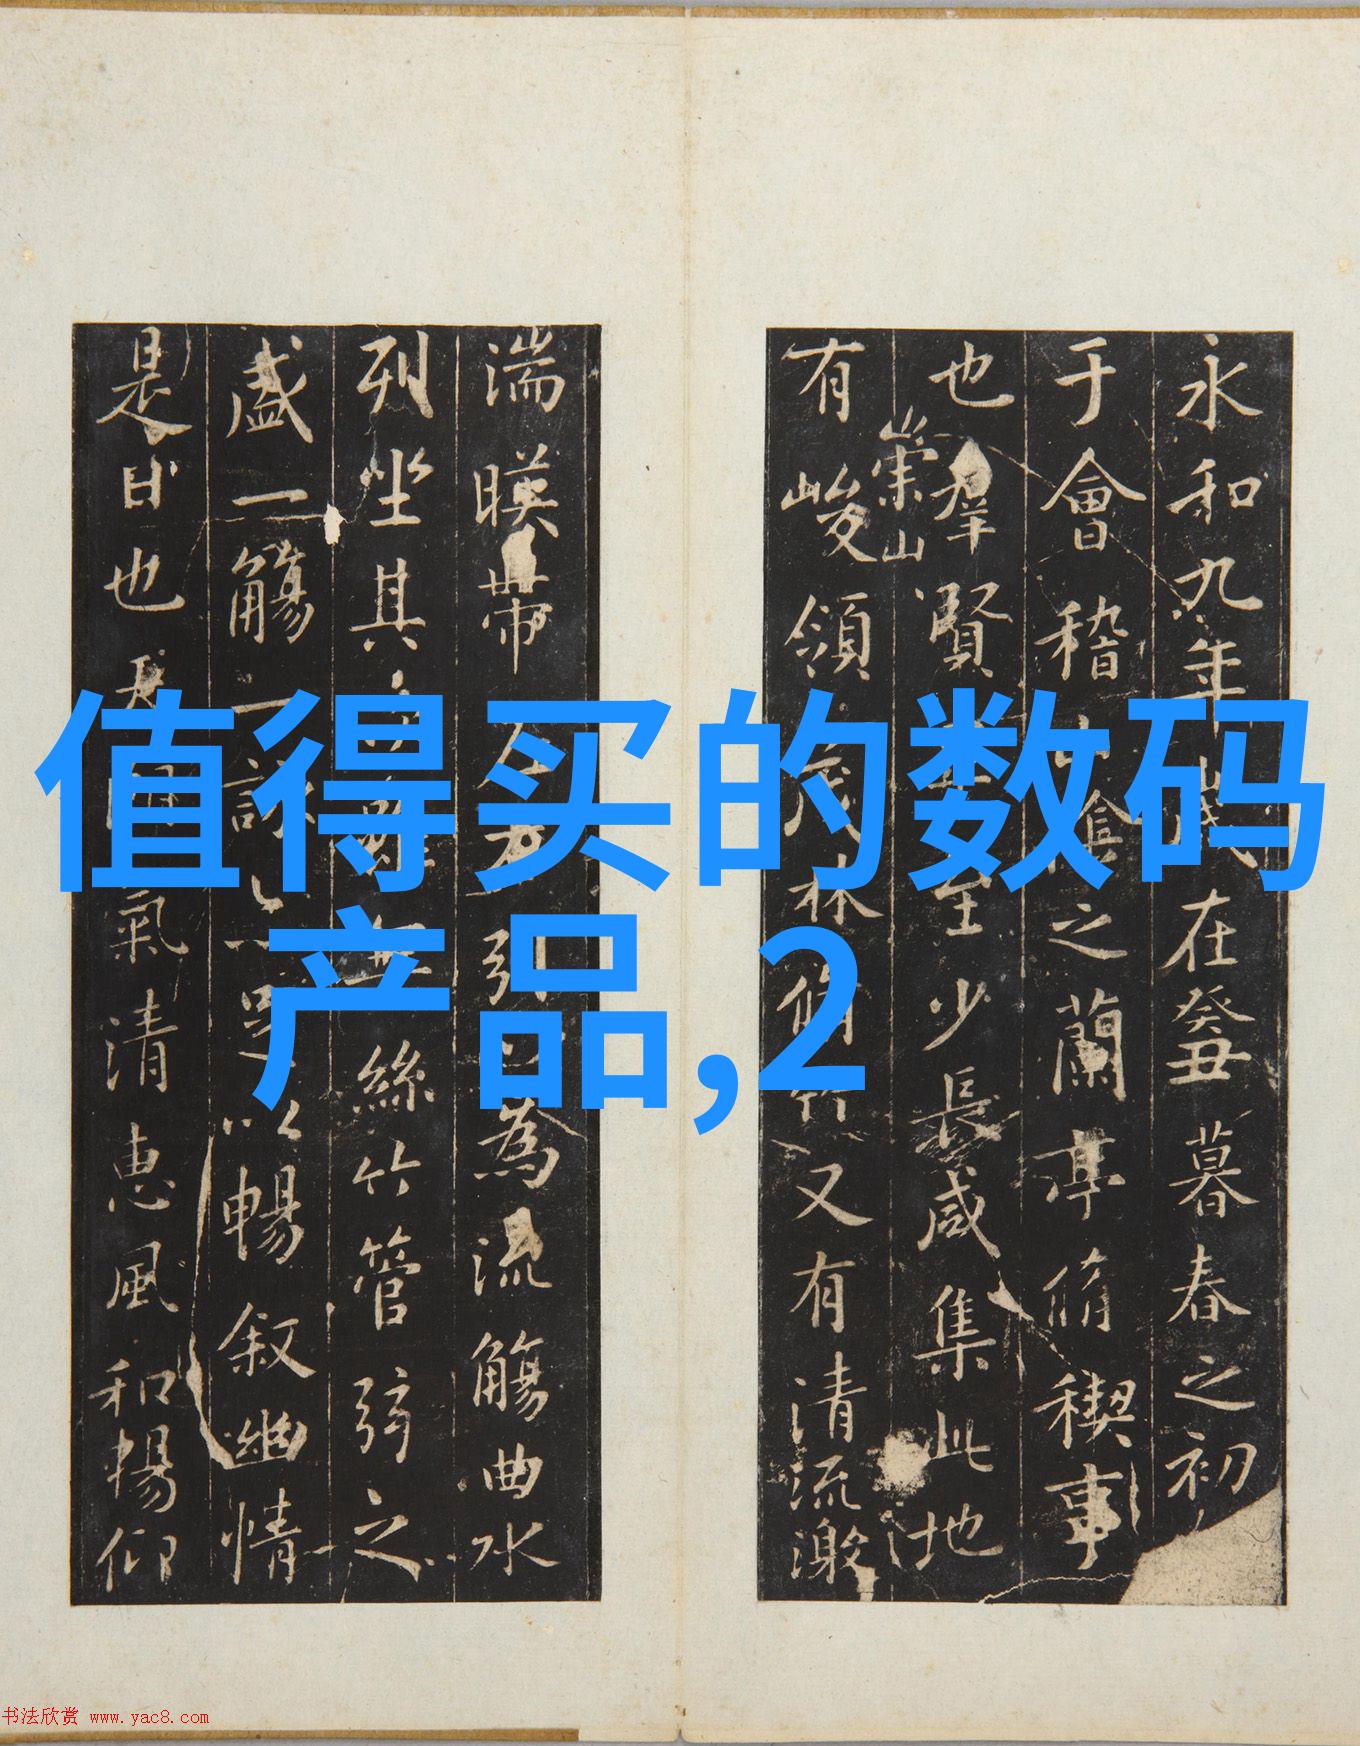 值得买的数码
产品,2
永和九年歲在癸丑暮春之初
于會稽山陰之蘭亭脩稧事
也群賢至少長咸集此地
有崇山峻領茂林脩竹又有清流激
湍暎帶左右引以為流觴曲水
列坐其次雖無絲竹管弦之
盛一觴一詠亦足以暢叙幽情
是日也天氣清惠風和暢仰
书法欣赏 www.yac8.com